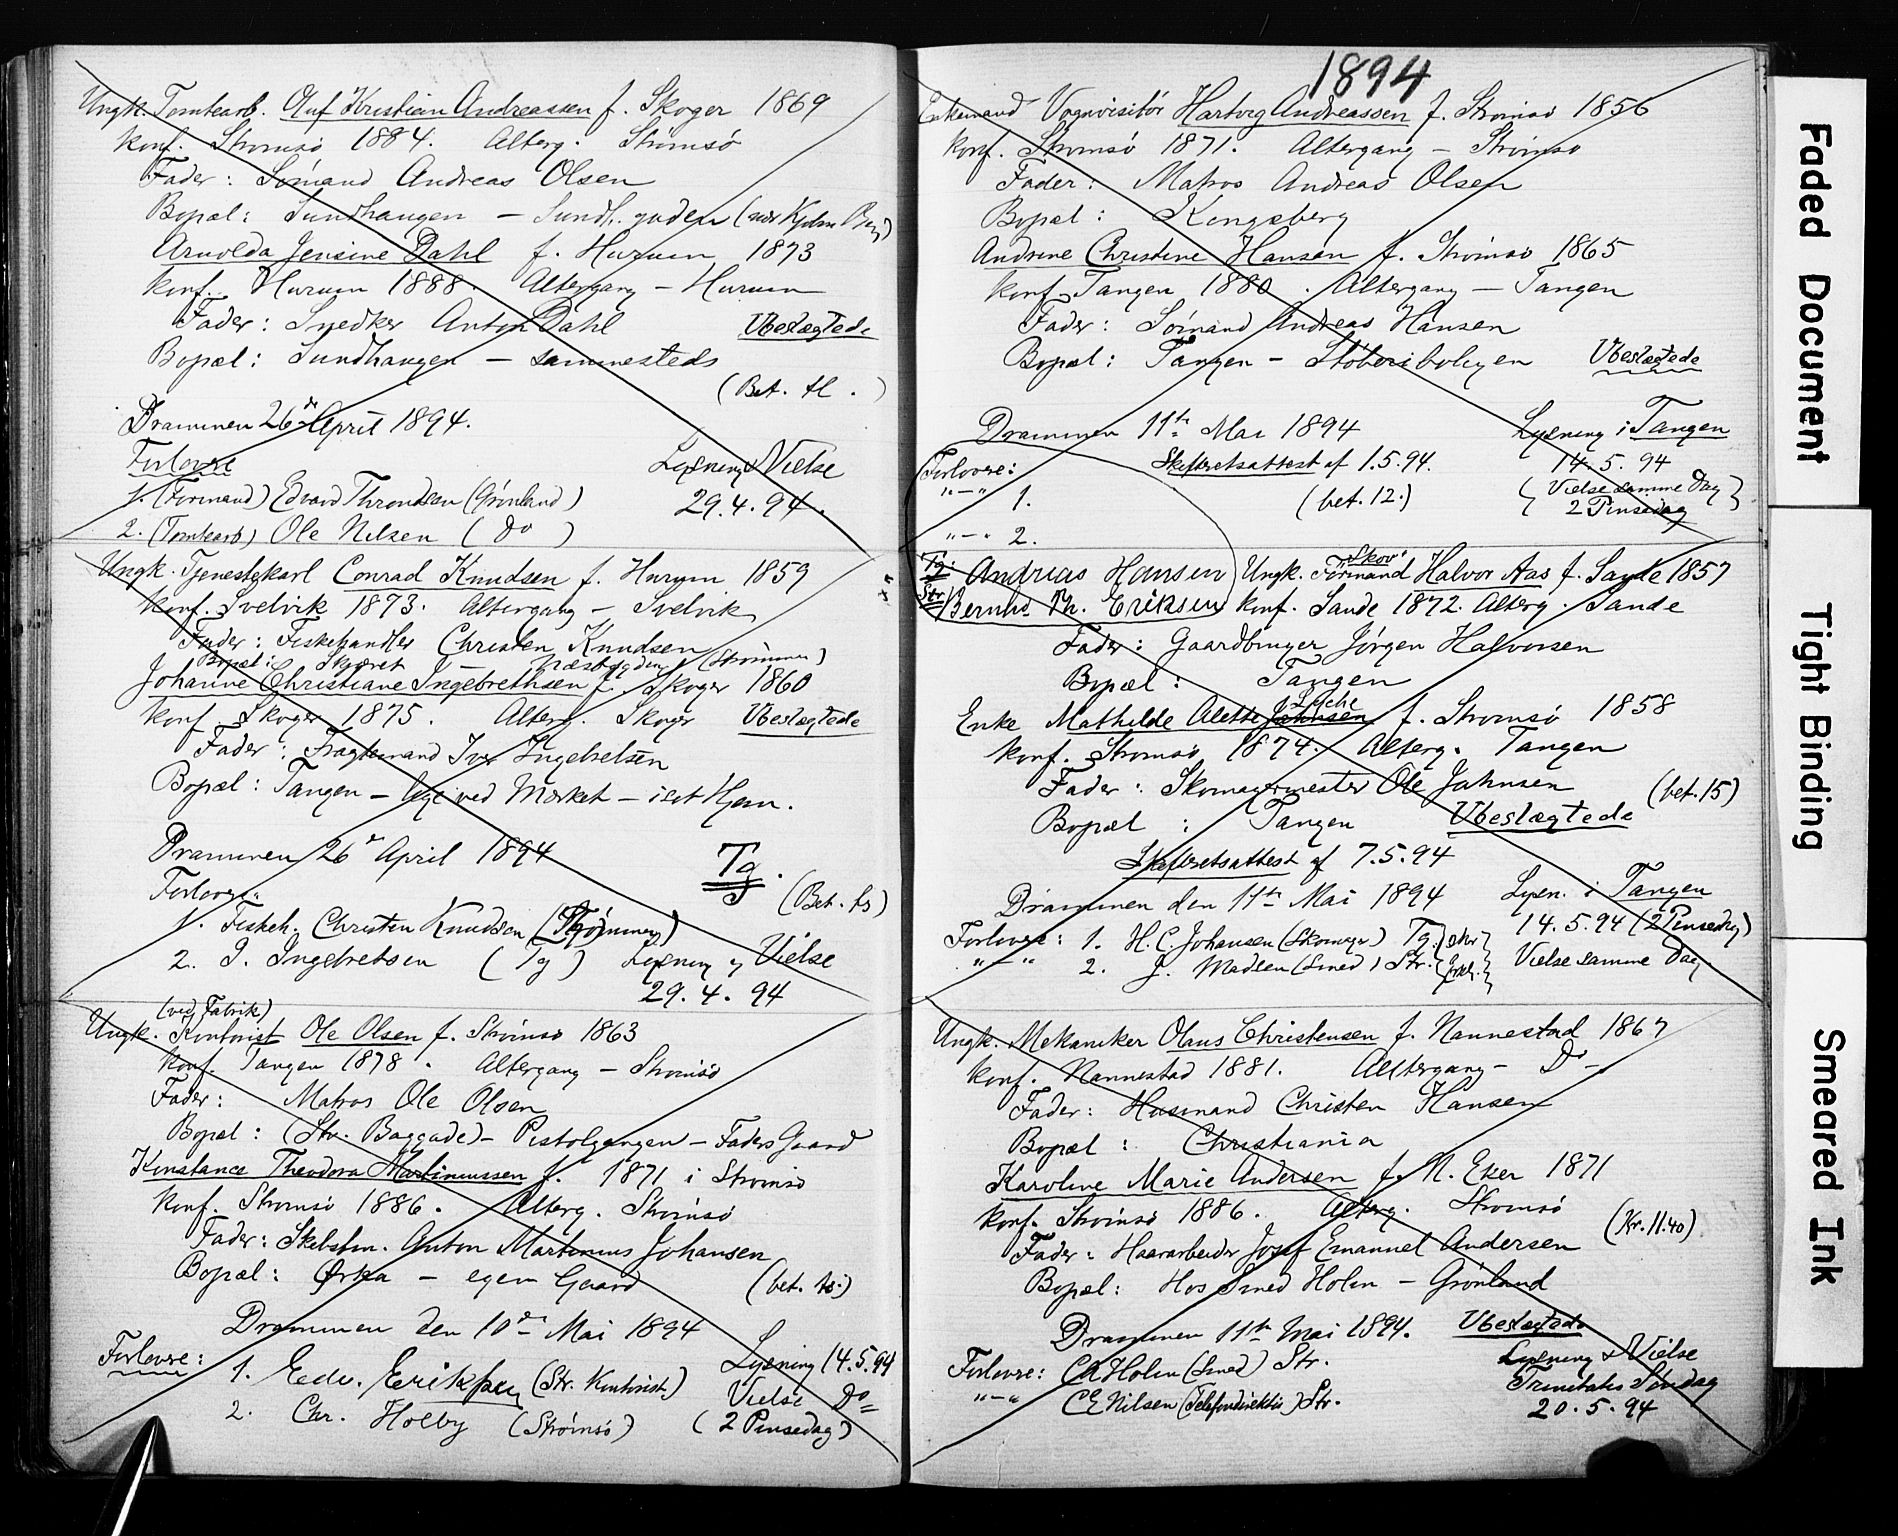 Ungk. Tomtearb. Oluf Kristian Andreassen f. Skoger 1869
konf. Strømsö 1884. Alterg. Strömsö
Fader: Sömand Andreas Olsen
Bopæl: Sundhaugen – Sundh. gaden
Arnolda Jensine Dahl f. Hurum 1873
konf. Hurum 1888. Altergang – Hurum
Fader: Snedker Anton Dahl Ubeslægtede
Bopæl: Sundhaugen – sammesteds
(Bet. )
Drammen 26de April 1894.
Forlovere Lysning & Vielse
1. (Formand) Edvard Throndsen (Grønland) 29.4.94.
2. (Tomtearb) Ole Nilsen (Do)
Ungk. Tjenestekarl Conrad Knudsen f. Hurum 1859
konf. Svelvik 1873. Altergang – Svelvik
Fader: Fiskehandler Christen Knudsen
Bopæl: (Strømmen)
Johanne Christiane Ingebrethsen f. Skoger 1860
konf. Skoger 1875. Alterg. Skoger Ubeslægtede
Fader: Fragtemand Iver Ingebretsen
Bopæl: Tangen – lige ved Mærket – i set Hjem.
Drammen 26de April 1894 Tg.
Forlovere: (Bet. )
1. Fiskeh. Christen Knudsen (Strömmen)
2. I. Ingebretsen (Tg) Lysning og Vielse
29.4.94
(ved Fabrik)
Ungk. Kontorist Ole Olsen f. Strömsö 1863
konf. Tangen 1878. Altergang – Strömsö
Fader: Matros Ole Olsen
Bopæl: (Str. Baggade) – Pistolgangen – Faders Gaard
Konstance Theodora Martinussen f. 1871 i Strömsö
konf. Strömsö 1886. Alterg. Strömsö
Fader: Skibstm. Anton Martinus Johansen
Bopæl: Ørka – egen Gaard (bet. )
Drammen den 10de Mai 1894
Forlovere: Lysning 14.5.94
1. Edv. Eriksen (Str. Kontorist) Vielse Do
2. Chr. Holby (Strömsö) (2 Pinsedag)
1894
Enkemand Vognvisitör Hartvig Andreassen f. Strömsö 1856
konf. Strömsö 1871. Altergang – Strömsö
Fader: Matros Andreas Olsen
Bopæl: Kongsberg
Andrine Christine Hansen f. Strömsö 1865
konf. Tangen 1880. Altergang – Tangen
Fader: Sömand Andreas Hansen
Bopæl: Tangen – Støberiboligen Ubeslægtede
Drammen 11te Mai 1894 Lysning i Tangen
Forlovere: Skifteretsattest af 1.5.94. 14.5.94
"–" 1. (bet. 12.) (Vielse samme Dag
"–" 2. 2 Pinsedag)
Tg: Andreas Hansen
Str. Bernh. Th. Eriksen
Skov
Ungk. Formand Halvor Aas f. Sande 1857
konf. Sande 1872. Alterg. Sande
Fader: Gaardbruger Jörgen Halvorsen
Bopæl: Tangen
Lyche
Enke Mathilde Alette Jahnsen f. Strömsö 1858
konf. Strömsö 1874. Alterg. Tangen
Fader: Skomagermester Ole Jahnsen (bet. 15)
Bopæl: Tangen Ubeslægtede
Skifteretsattest af 7.5.94
Drammen den 11te Mai 1894 Lysn. i Tangen
14.5.94 (2 Pinsedag)
Forlovere: 1. H. C. Johansen (Skomager) Tg.
"–" 2. J. Madsen (Smed) Str. Vielse samme Dag
Ungk. Mekaniker Olaus Christensen f. Nannestad 1867
konf. Nannestad 1881. Altergang – Do –
Fader: Husmand Christen Hansen
Bopæl: Christiania
Karoline Marie Andersen f. N. Eker 1871
konf. Strömsö 1886. Alterg. Strömsö (Kr. 11.40)
Fader: Haararbeider Josef Emanuel Andersen
Bopæl: Hos Smed Holm – Grönland
Drammen 11te Mai 1894. Ubeslægtede
Forlovere: Ch Holm (Smed) Str. Lysning & Vielse
"–" C E Nilsen (Telefondirektör) Str. Trinitatis Söndag
20.5.94
Faded Document
Tight Binding
Smeared Ink